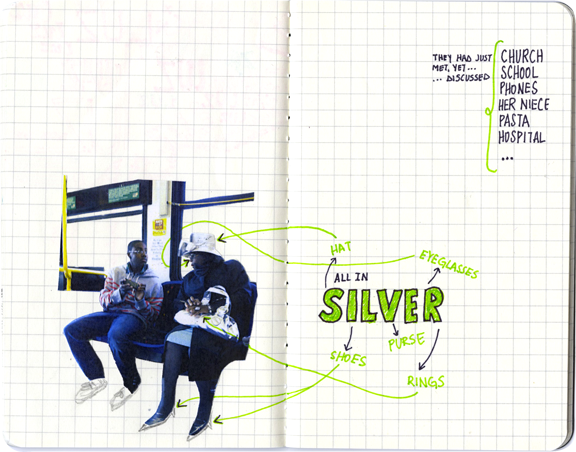 THEY HAD JUST
MET, YET...
... DISCUSSED
CHURCH
SCHOOL
PHONES
HER NIECE
PASTA
HOSPITAL
...
HAT
EYEGLASSES
ALL IN
SILVER
PURSE
SHOES
RINGS